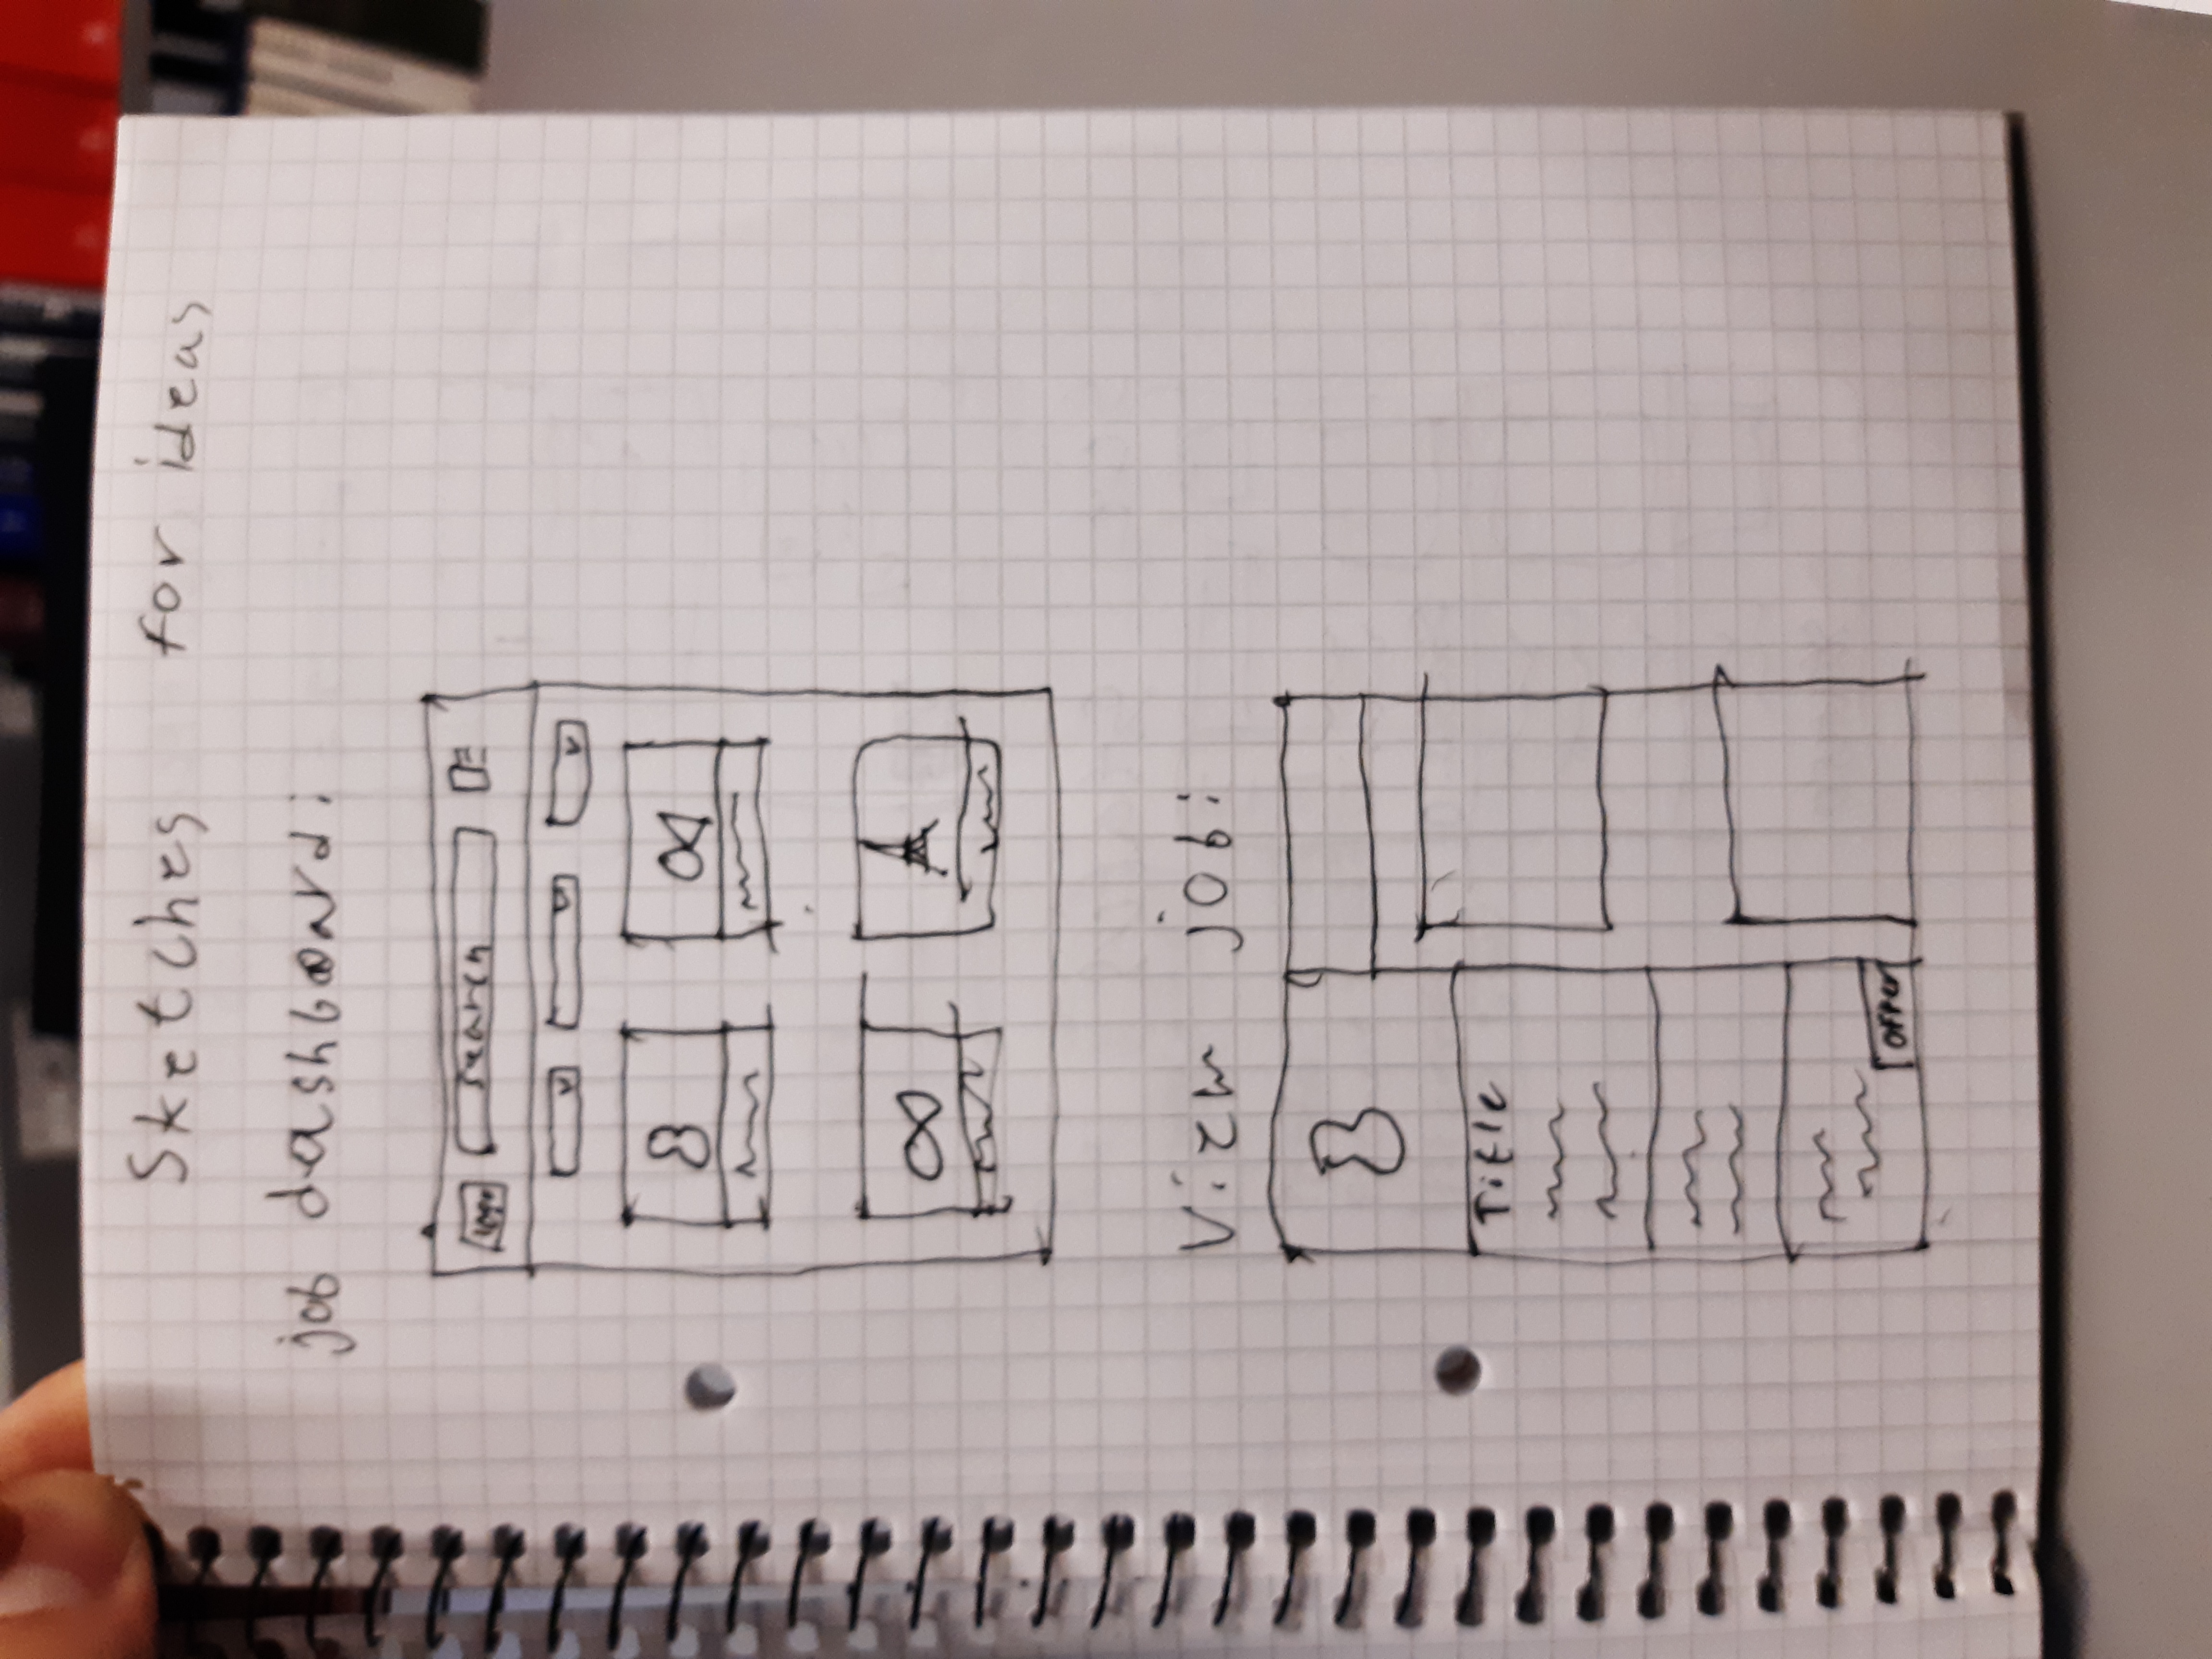 Sketches for ideas
job dashboard:
logo search
View job:
Title
offer